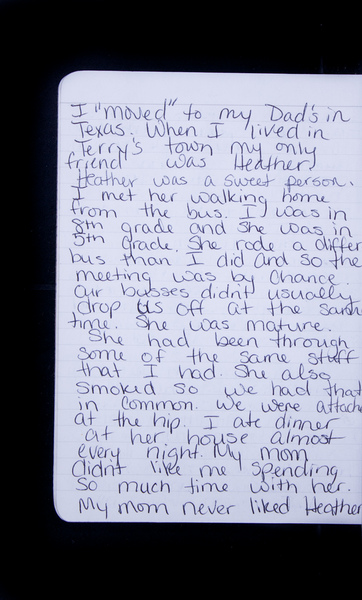 I "moved" to my Dad's in
Texas. When I lived in
Terry's town my only
friend was Heather.
Heather was a sweet person.
I met her walking home
from the bus. I was in
8th grade and she was in
5th Grade. She rode a differ
bus than I did and so the
meeting was by chance.
Our busses didn't usually
drop us off at the same
time. She was mature.
She had been through
some of the same stuff
that I had. She also
smoked so we had that
in common. We were attach
at the hip. I ate dinner
at her house almost
every night. My mom
didn't like me spending
so much time with her.
My mom never liked Heather